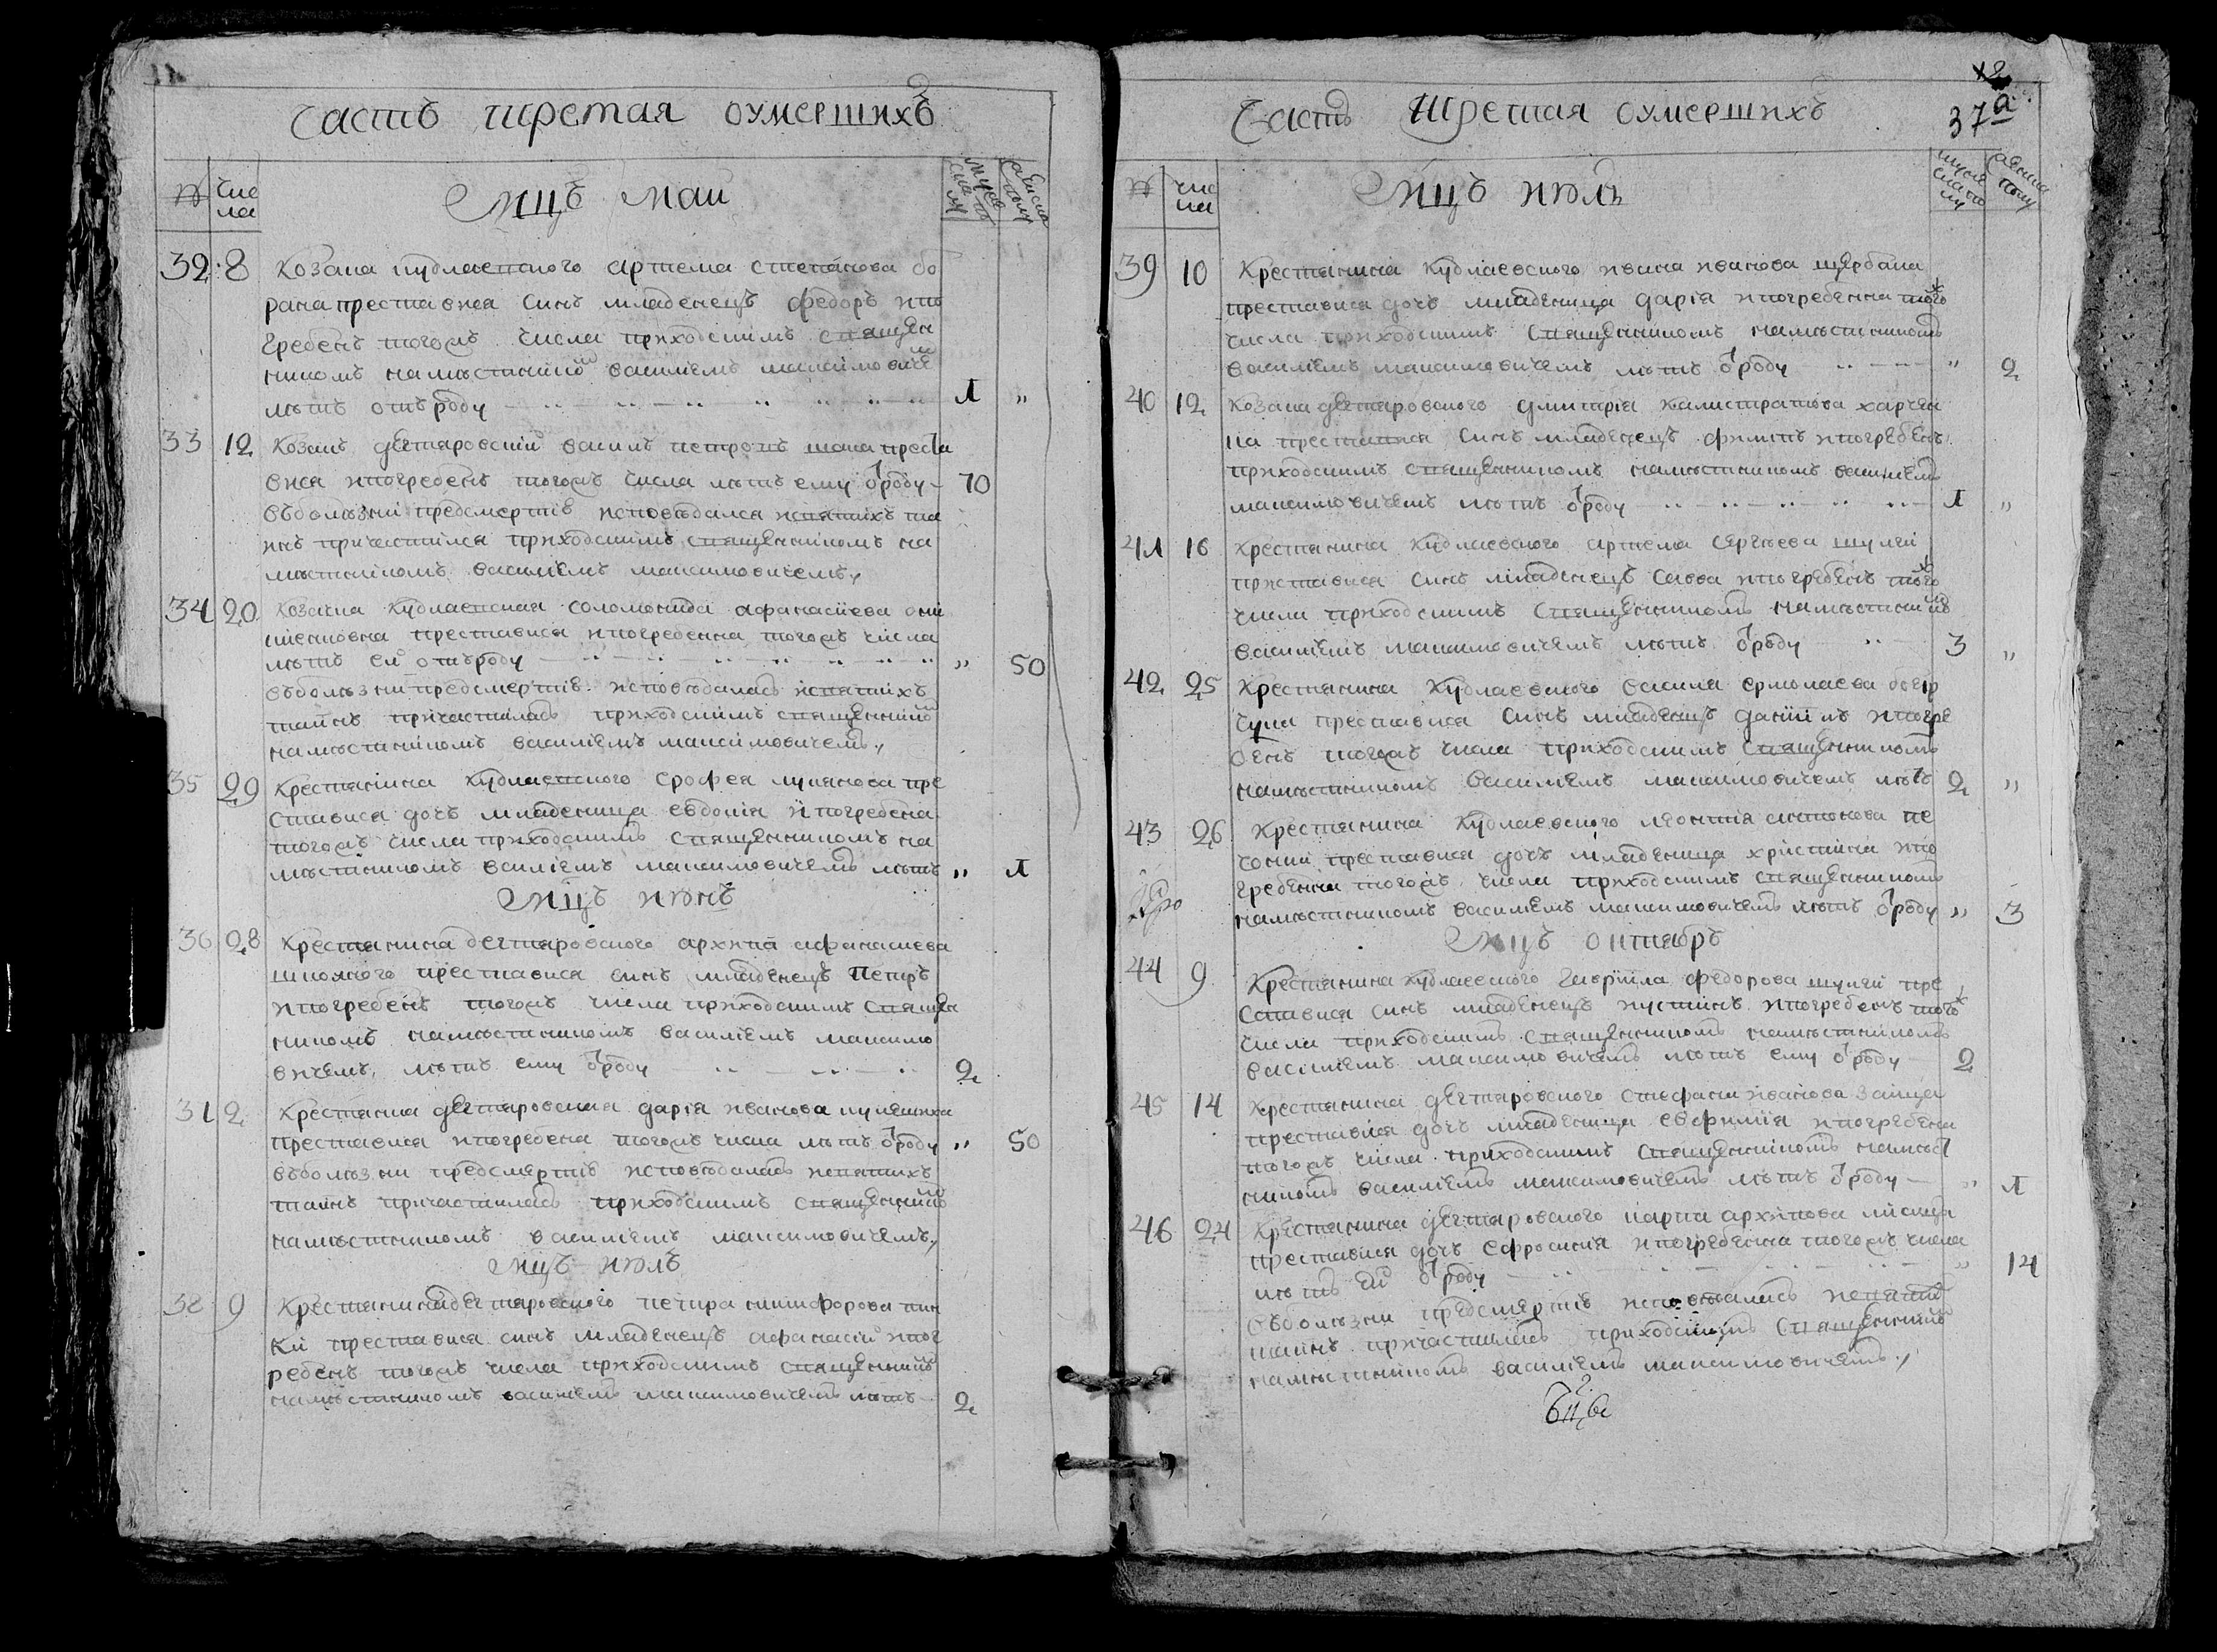 часть третая оумершихъ
№ чис ла мцъ маи мужеска полу женска полу
32 8 Козака кудлаевского артема степанова бо
рана преставися синъ младенецъ федоръ ипо
гребенъ тогожъ числа приходскимъ священ
никомъ наместникомъ василіемъ максимовичем
летъ отъ роду 1 „
33 12 Козакъ дегтяровскій василь петровъ шака преста
вися ипогребенъ тогожъ числа летъ ему ѿроду 70
въболезни предсмертіе исповедался исвятихъ та
инъ причастился приходскимъ священникомъ на
местникомъ василіемъ максимовичемъ
34 20 Козачка кудлаевская соломонида афанасиева
преставися ипогребенна тогожъ числа
летъ ей отъ роду „ 50
въболезни предсмертіе исповедалась исвятихъ
таинъ причастилась приходскимъ священником
наместникомъ василіемъ максимовичемъ
35 29 Крестянина кудлаевского ерофея лукянова пре
ставися дочъ младеница евдокія ипогребена
тогожъ числа приходскимъ священникомъ на
местникомъ василіемъ максимовичемъ летъ „ 1
мцъ июнь
36 28 Крестянина дегтяровского архипа афанасиева
преставися синъ младенецъ петръ
ипогребенъ тогожъ числа приходскимъ священ
никомъ наместникомъ василіемъ максимо
вичемъ летъ ему ѿроду 2
37 2 Крестянка дегтяровская дарія иванова
преставися ипогребена тогожъ числа летъ ѿроду „ 50
въболезни предсмертіе исповедалась исвятихъ
таинъ причастилась приходскимъ священником
наместникомъ василіемъ максимовичемъ
мцъ июль
38 9 Крестянина дегтяровского петра никифорова
преставися синъ младенецъ афанасій ипог
ребенъ тогожъ числа приходскимъ священником
наместникомъ василіемъ максимовичемъ летъ 2
часть третая оумершихъ 37 а
№ чис ла мцъ июль мужеска полу женска полу
39 10 Крестянина кудлаевского ивана иванова щербака
преставися дочъ младеница дарія ипогребенна тогож
числа приходскимъ священникомъ наместникомъ
василіемъ максимовичемъ летъ ѿроду „ 2
40 12 Козака дегтяровского дмитрія калистратова харчен
ка преставися синъ младенецъ филипъ ипогребенъ
приходскимъ священникомъ наместникомъ василіемъ
максимовичемъ летъ ѿроду 1 „
41 16 Крестянина кудлаевского артема сергеева шулги
преставися синъ младенецъ савва ипогребенъ тогож
числа приходскимъ священникомъ наместником
василіемъ максимовичемъ летъ ѿроду 3 „
42 25 Крестянина кудлаевского василя ермолаева
преставися синъ младенецъ даніилъ ипогре
бенъ тогожъ числа приходскимъ священникомъ
наместникомъ василіемъ максимовичемъ летъ 2 „
43 26 Крестянина кудлаевского леонтія антонова
преставися дочъ младеница христина ипо
гребенна тогожъ числа приходскимъ священникомъ
наместникомъ василіемъ максимовичемъ летъ ѿроду „ 3
мцъ октябръ
44 9 Крестянина кудлаевского гавріила федорова шулги пре
ставися синъ младенецъ иустинъ ипогребенъ тогож
числа приходскимъ священникомъ наместникомъ
василіемъ максимовичемъ летъ ему ѿроду 2
45 14 Крестянина дегтяровского стефана иванова заица
преставися дочъ младеница евфимія ипогребена
тогожъ числа приходскимъ священникомъ намест
никомъ василіемъ максимовичемъ летъ ѿроду „ 1
46 24 Крестянина дегтяровского карпа архипова лисица
преставися дочъ ефросинія ипогребенна тогожъ числа
летъ ей ѿроду „ 14
въболезни предсмертіе исповедалась исвятих
таинъ причастилась приходскимъ священником
наместникомъ василіемъ максимовичемъ